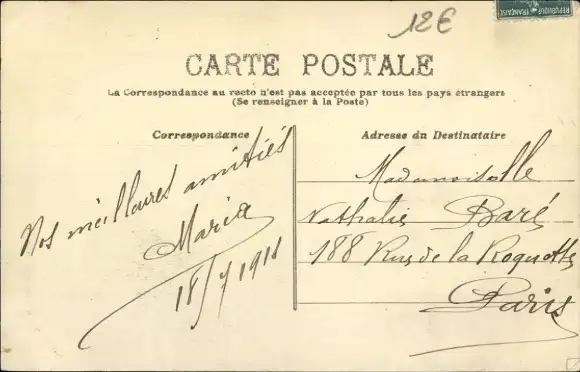 12€
RÉPUBLIQUE FRANÇAISE
CARTE POSTALE
La Correspondance au recto n'est pas acceptée par tous les pays étrangers
(Se renseigner à la Poste)
Correspondance
Nos meillaures amitiés
Maria
18/7 1911
Adresse du Destinataire
Madamoiselle
Nathalie Baré
188 Rue de la Roquette
Paris